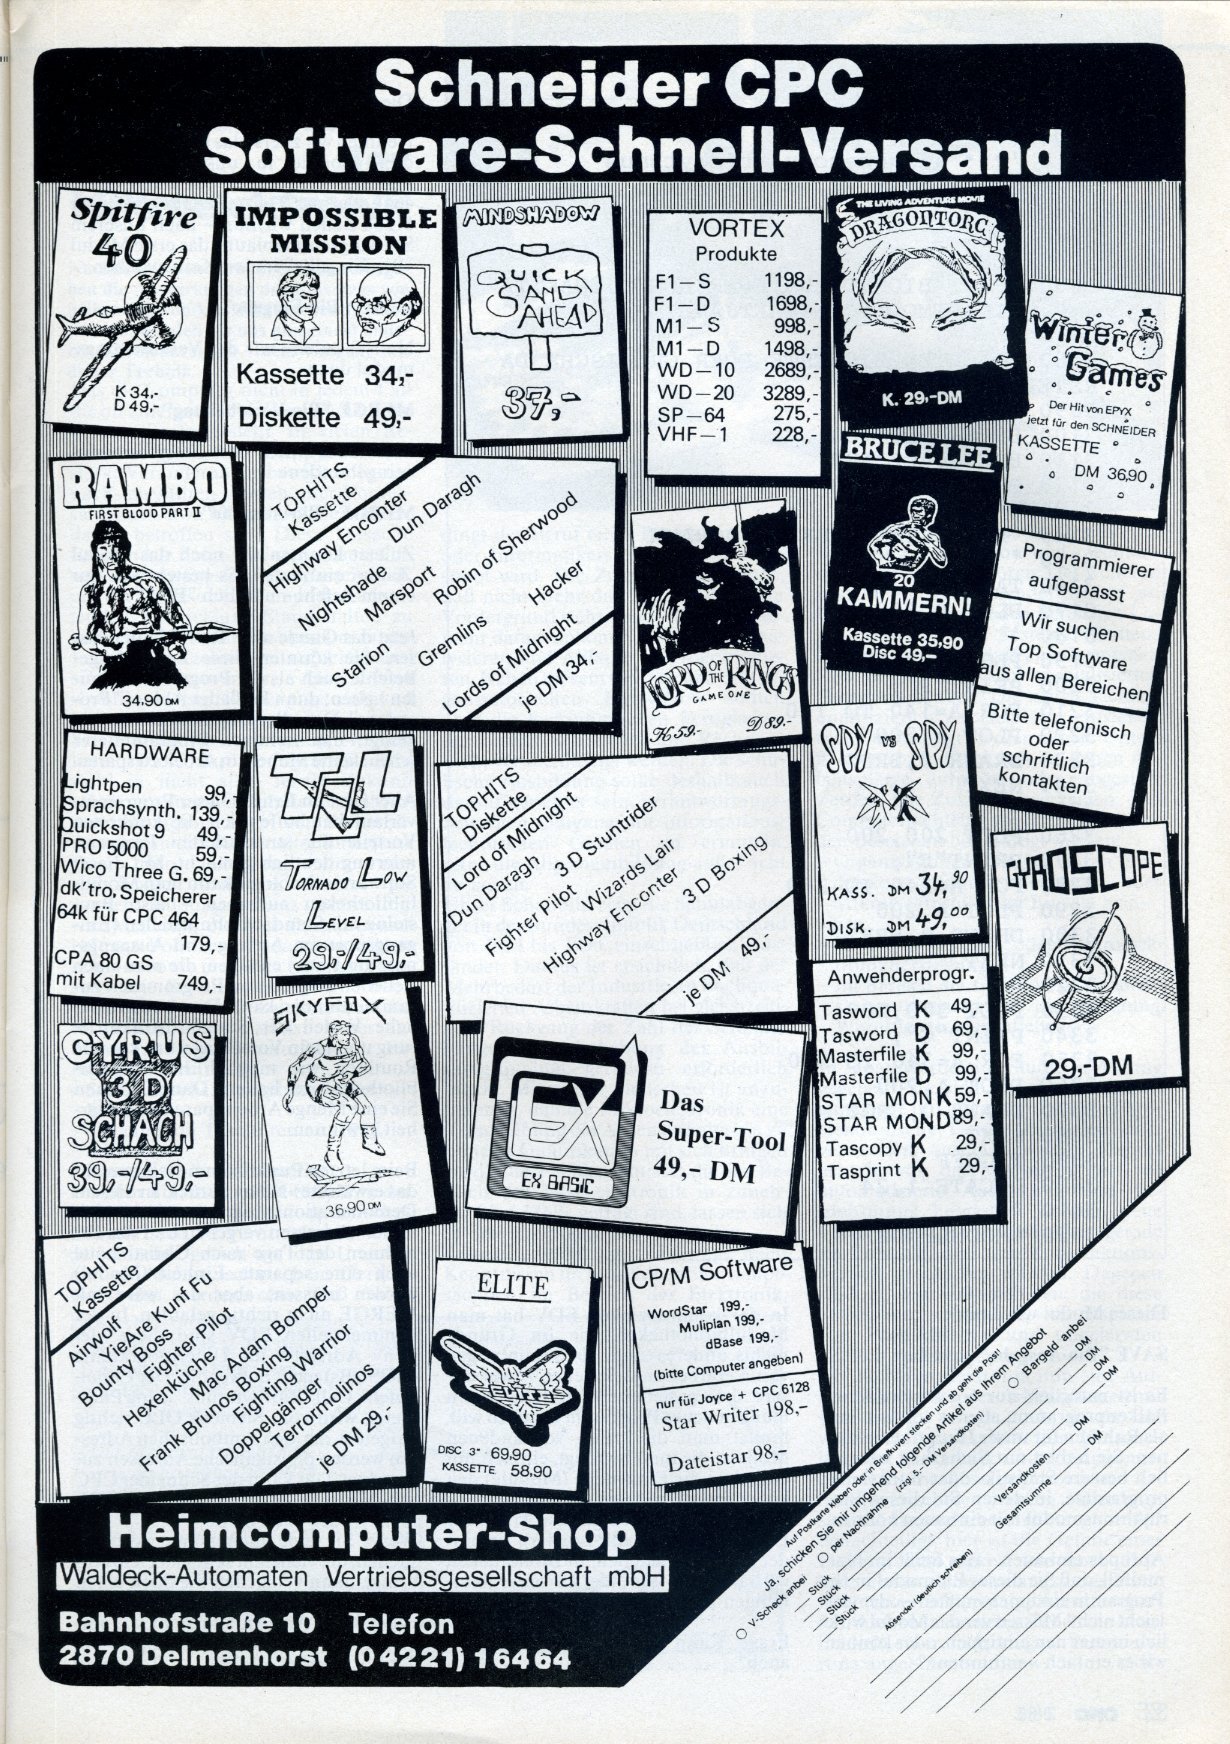 Schneider CPC
Software-Schnell-Versand
Spitfire
40
K 34,-
D 49,-
IMPOSSIBLE
MISSION
Kassette 34,-
Diskette 49,-
MINDSHADOW
QUICK
SAND
AHEAD
37,-
VORTEX
Produkte
F1—S 1198,-
F1—D 1698,-
M1—S 998,-
M1—D 1498,-
WD—10 2689,-
WD—20 3289,-
SP—64 275,-
VHF—1 228,-
THE LIVING ADVENTURE MOVIE
DRAGONTORC
K. 29,-DM
Winter
Games
Der Hit von EPYX
jetzt für den SCHNEIDER
KASSETTE
DM 36,90
RAMBO
FIRST BLOOD PART II
34,90 DM
TOPHITS
Kassette
Highway Enconter
Dun Daragh
Nightshade
Marsport
Robin of Sherwood
Starion
Gremlins
Hacker
Lords of Midnight
je DM 34,-
LORD OF THE RINGS
GAME ONE
K 59.- D 89.-
BRUCE LEE
20
KAMMERN!
Kassette 35,90
Disc 49,—
Programmierer
aufgepasst
Wir suchen
Top Software
aus allen Bereichen
Bitte telefonisch
oder
schriftlich
kontakten
HARDWARE
Lightpen 99,-
Sprachsynth. 139,-
Quickshot 9 49,-
PRO 5000 59,-
Wico Three G. 69,-
dk'tro, Speicherer
64k für CPC 464
179,-
CPA 80 GS
mit Kabel 749,-
TLL
TORNADO LOW
LEVEL
29,-/49,-
TOPHITS
Diskette
Lord of Midnight
Dun Daragh
3 D Stuntrider
Fighter Pilot
Wizards Lair
Highway Enconter
3 D Boxing
je DM 49,-
SPY VS SPY
KASS. DM 34,90
DISK. DM 49,00
GYROSCOPE
29,-DM
CYRUS
3 D
SCHACH
39,-/49,-
SKYFOX
36,90 DM
EX
EX BASIC
Das
Super-Tool
49,- DM
Anwenderprogr.
Tasword K 49,-
Tasword D 69,-
Masterfile K 99,-
Masterfile D 99,-
STAR MON K 59,-
STAR MON D 89,-
Tascopy K 29,-
Tasprint K 29,-
TOPHITS
Kassette
Airwolf
YieAre Kunf Fu
Bounty Boss
Fighter Pilot
Hexenküche
Mac Adam Bomper
Frank Brunos Boxing
Fighting Warrior
Doppelgänger
Terrormolinos
je DM 29,-
ELITE
ELITE
DISC 3" · 69,90
KASSETTE 58,90
CP/M Software
WordStar 199,-
Muliplan 199,-
dBase 199,-
(bitte Computer angeben)
nur für Joyce + CPC 6128
Star Writer 198,-
Dateistar 98,-
Auf Postkarte kleben oder in Briefkuvert stecken und ab geht die Post!
Ja, schicken Sie mir umgehend folgende Artikel aus Ihrem Angebot
V-Scheck anbei
per Nachnahme (zzgl. 5,- DM Versandkosten)
Bargeld anbei
Stück DM
Stück DM
Stück DM
Stück DM
Versandkosten DM
Gesamtsumme DM
Absender (deutlich schreiben)
Heimcomputer-Shop
Waldeck-Automaten Vertriebsgesellschaft mbH
Bahnhofstraße 10 Telefon
2870 Delmenhorst (0 42 21) 1 64 64